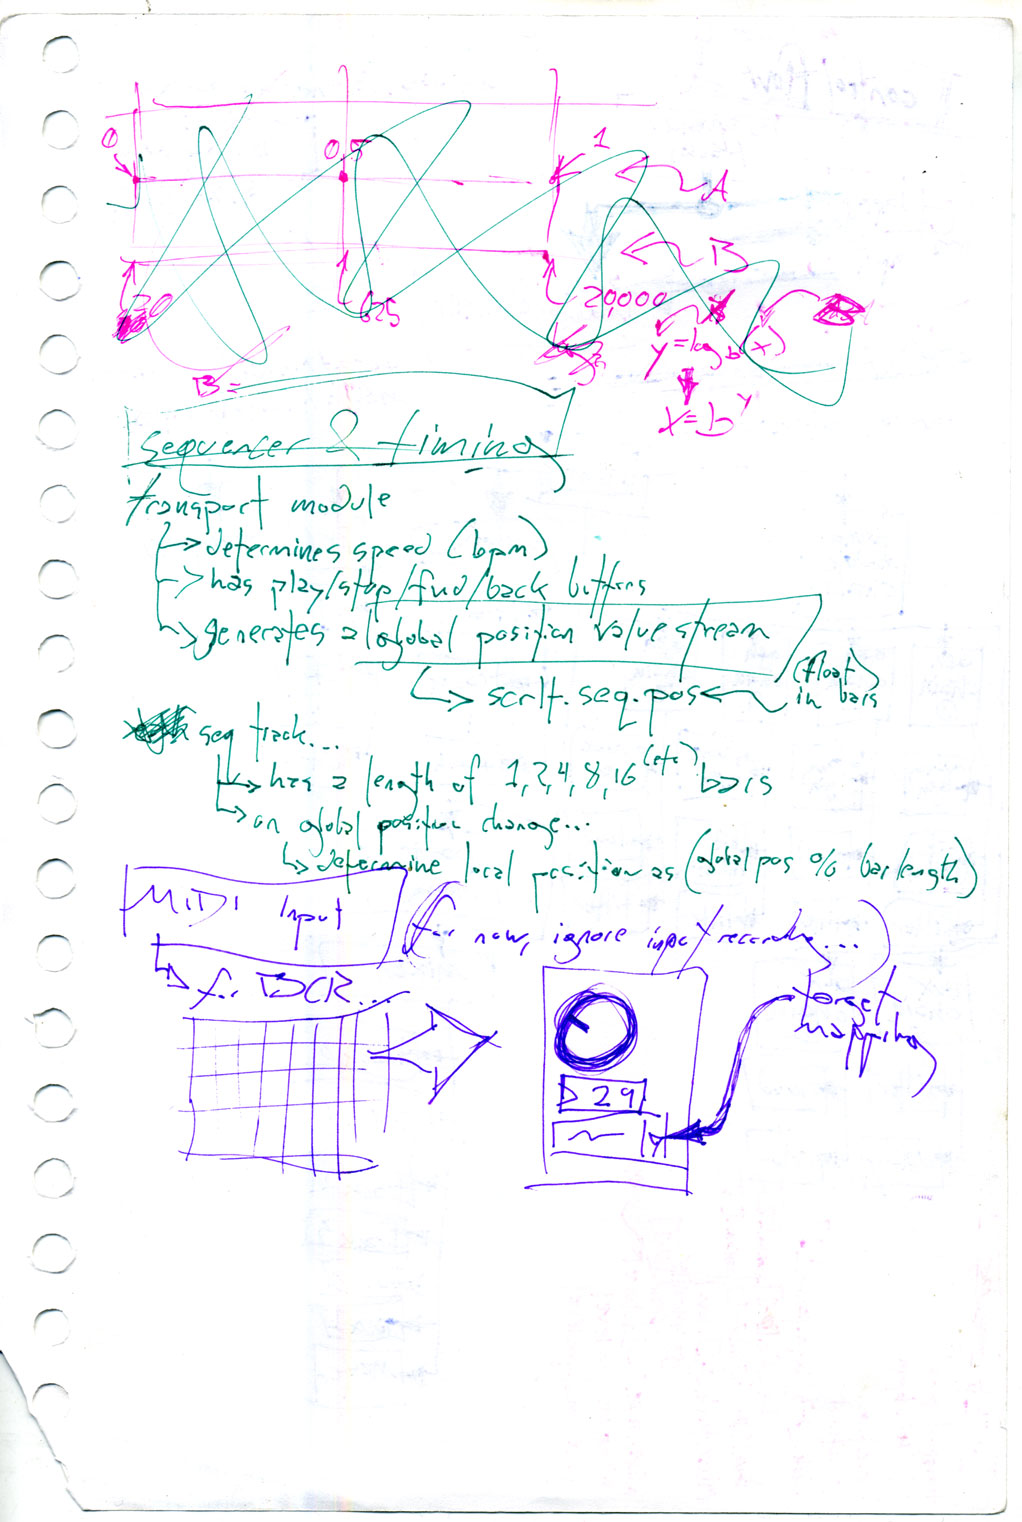 0
0.5
1
A
B
20
625
20,000
y = log b (x)
x = b^y
B =
Sequencer & timing
transport module
determines speed (bpm)
has play/stop/fwd/back buttons
generates a global position value stream
scrlt.seq.pos
(float) in bars
seq track...
has a length of 1, 2, 4, 8, 16 (etc) bars
on global position change...
determine local position as (global pos % bar length)
MIDI Input
(for now, ignore input recording...)
for BCR...
target
mapping
29